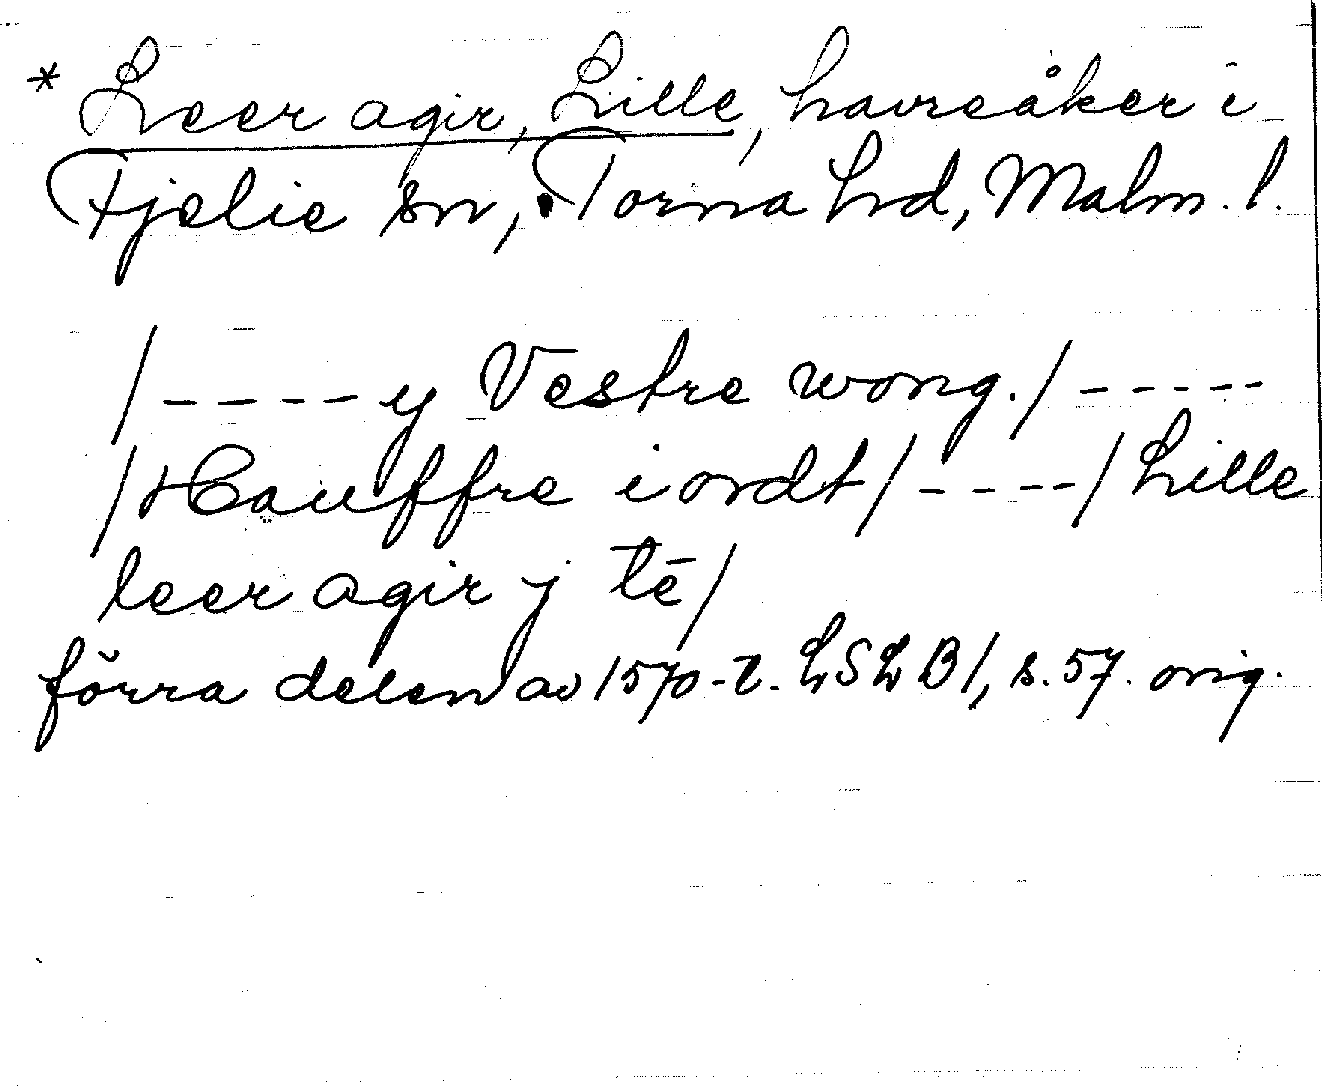 * Leer agir, Lille, havreåker i
Fjelie sn, Torna hd, Malm. l.
/ - - - - - y Vestre wong. / - - - - -
/ Hauffre iordt / - - - - / Lille
leer agir j tē /
förra delen av 1570-t. LSLB 1, s. 57. orig.